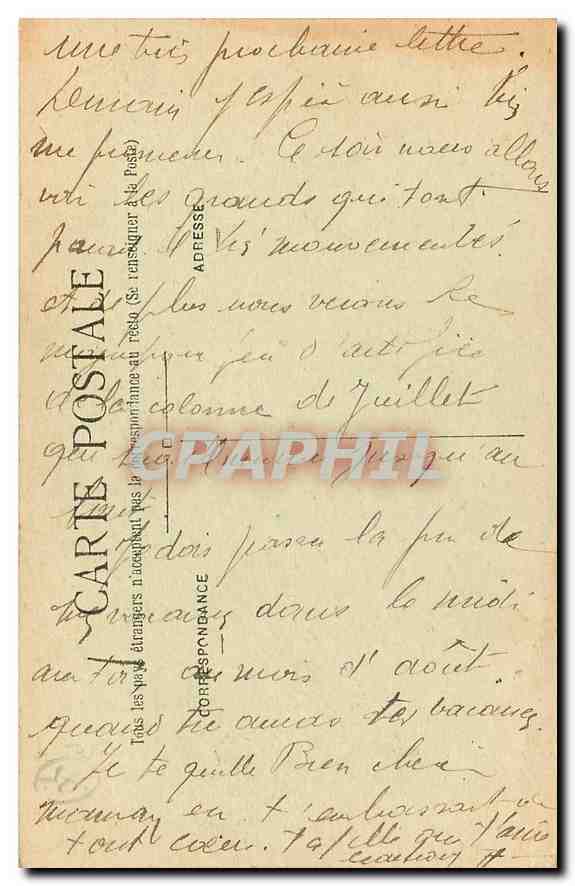 une très prochaine lettre.
Demain j'espère aussi
me promener. Ce soir nous allons
voir les grands qui font
mouvementés
et de plus nous verrons le
feu d'artifice
de la colonne de Juillet
qui jusqu'au
Je dois passer la fin de
vacances dans le midi
au mois d'août.
quand tu auras tes vacances.
Je te quitte Bien chère
maman en t'embrassant de
tout coeur. ta fille qui t'aime
CARTE POSTALE
Tous les pays étrangers n'acceptent pas la correspondance au recto (Se renseigner à la Poste)
CORRESPONDANCE
ADRESSE
CPAPHIL